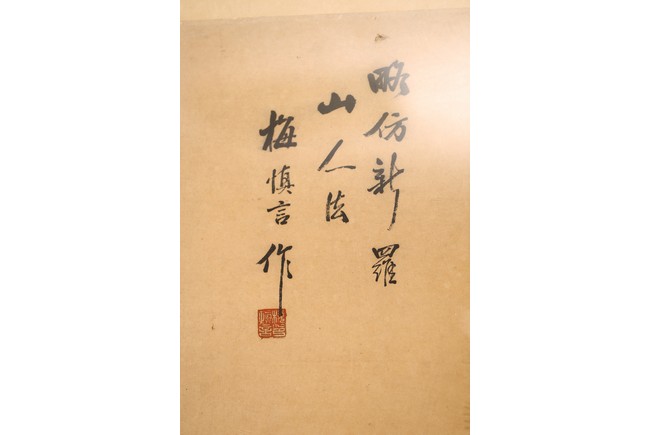 略仿新羅
山人法
梅慎言作